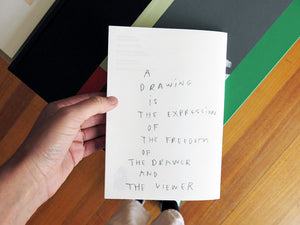 A
DRAWING
IS
THE EXPRESSION
OF
THE FREEDOM
OF
THE DRAWER
AND
THE VIEWER